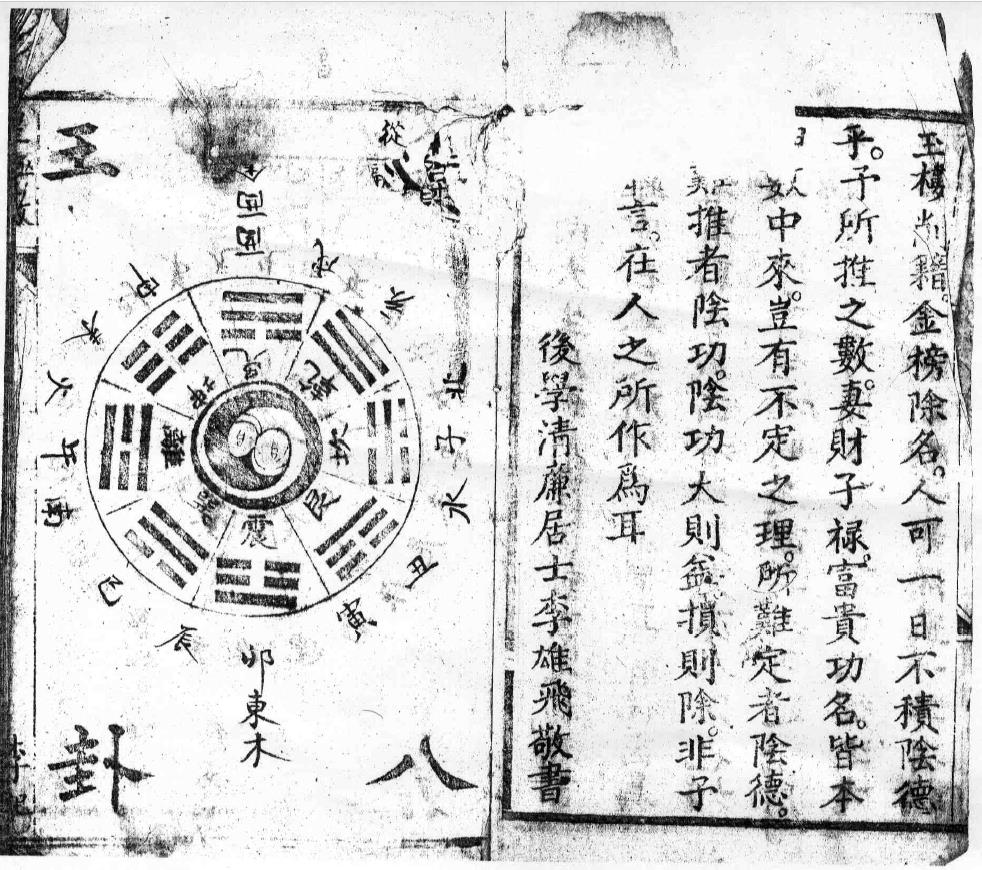 玉樓削籍。金榜除名。人可一日不積陰德
乎。予所推之數。妻財子祿。富貴功名。皆本
中來。豈有不定之理。所難定者陰德。
推者陰功。陰功大則益損則除。非子
言。在人之所作爲耳
後學清廉居士李雄飛敬書
從
八
卦
金
西
酉
戌
亥
北
子
水
丑
寅
卯
東
木
辰
巳
南
午
火
未
申
兌
乾
坎
艮
震
巽
離
坤